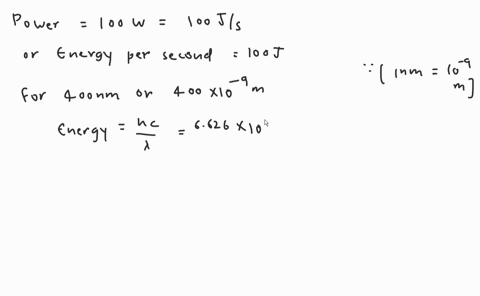 Power = 100 W = 100 J/s
or Energy per second = 100 J
∵ [ 1nm = 10⁻⁹ m ]
for 400nm or 400 × 10⁻⁹ m
Energy = hc/λ = 6.626 × 10